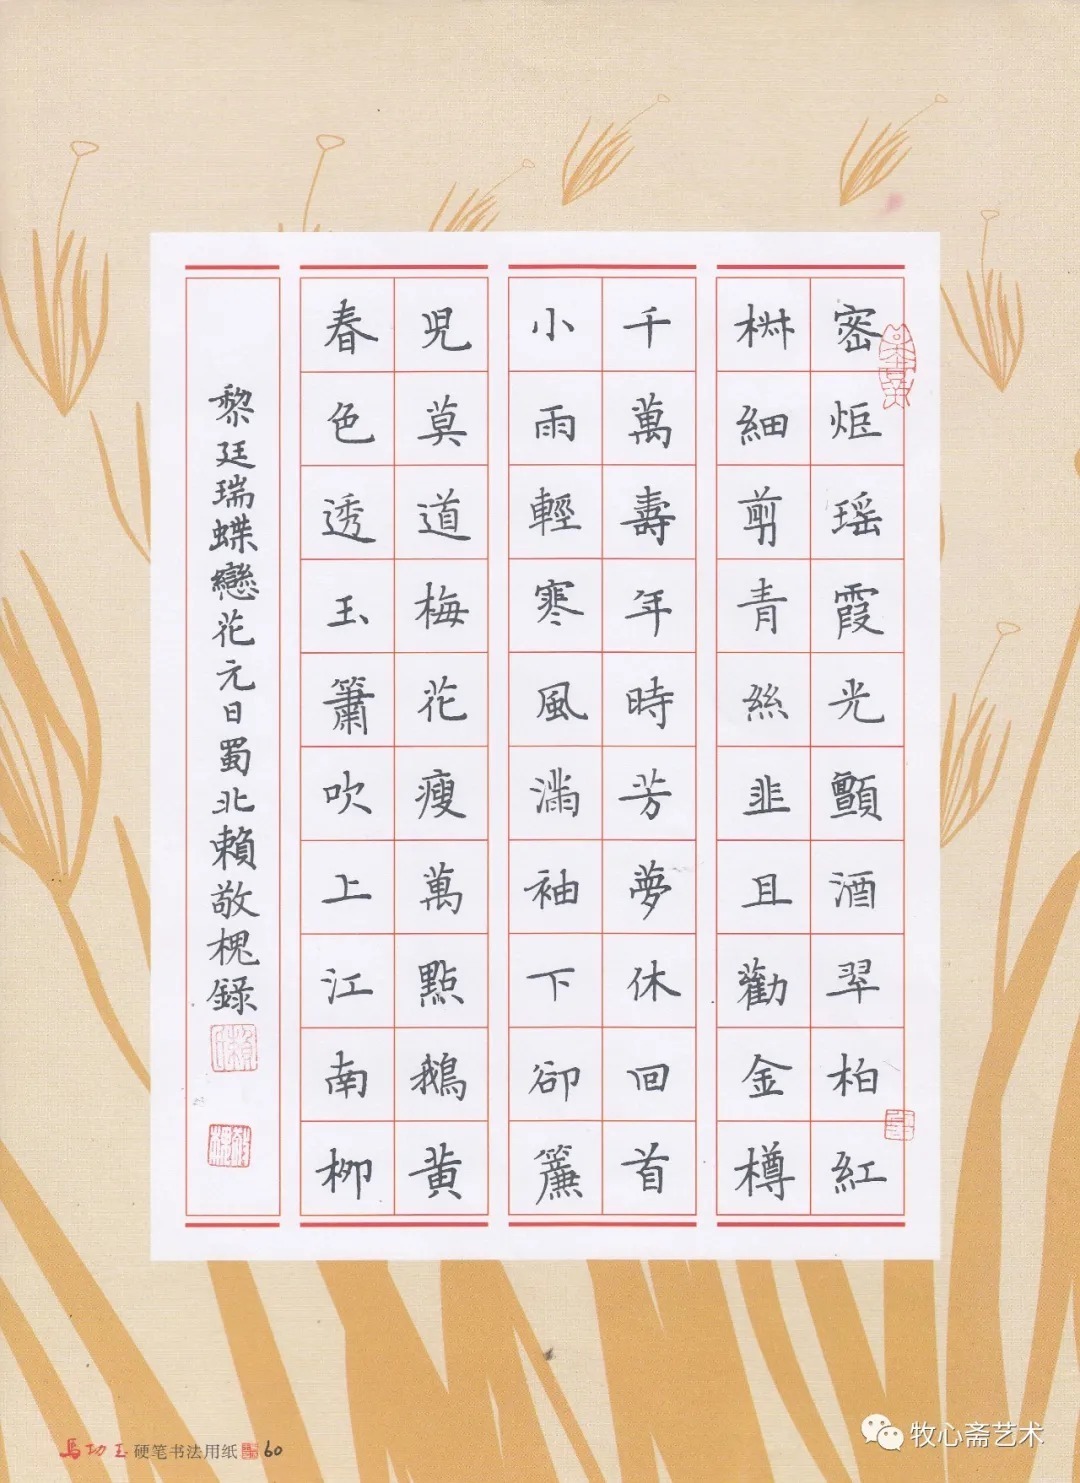 密炬瑶霞光顫酒翠柏紅
椒細剪青絲韭且勸金樽
千萬壽年時芳夢休回首
小雨輕寒風滿袖下卻簾
兒莫道梅花瘦萬點鵝黃
春色透玉簫吹上江南柳
黎廷瑞蝶戀花元日蜀北賴敬槐錄
硬笔书法用纸 60
牧心斋艺术